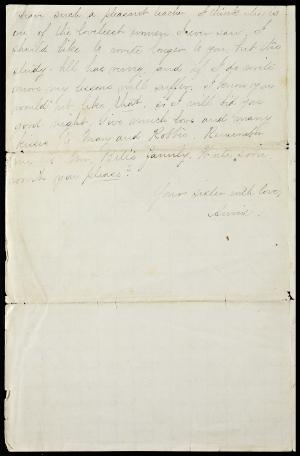 have such a pleasant teacher. I think she is
one of the loveliest women I ever saw. I
should like to write longer to you, but the
study-bell has rung, and if I do write
more my lessons will suffer. I know you
wouldn't like that, so I will bid you
good night. Give much love and many
kisses to Mary and Robbie. Remember
me to Mr. Bell's family. Write soon,
won't you please?
Your sister with love,
Annie.